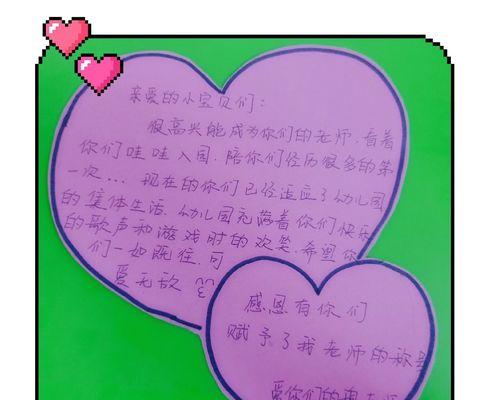 亲爱的小宝贝们：
很高兴能成为你们的老师，看着
你们哇哇入园，陪你们经历很多的第
一次... 现在的你们已经适应了幼儿园
的集体生活，幼儿园充满着你们快乐
的歌声和游戏时的欢笑，希望你
们一如既往，可
爱无敌
感恩有你们
赋予了我老师的称号
爱你们的